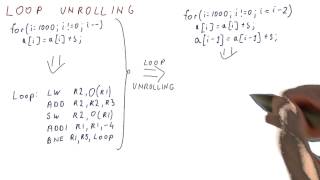 LOOP UNROLLING
for(i=1000; i!=0; i--)
a[i]=a[i]+s;
Loop: LW R2,0(R1)
ADD R2,R2,R3
SW R2,0(R1)
ADDI R1,R1,-4
BNE R1,R5,Loop
LOOP
UNROLLING
for(i=1000; i!=0; i=i-2)
a[i]=a[i]+s;
a[i-1]=a[i-1]+s;